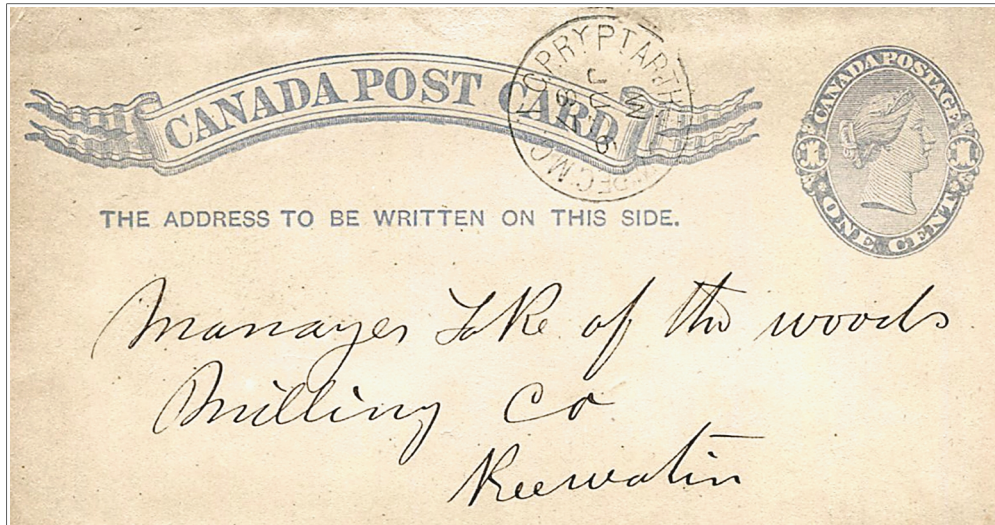 CANADA POST CARD
C.P.RY PT.ARTH.
CANADA POSTAGE
1 1
ONE CENT
THE ADDRESS TO BE WRITTEN ON THIS SIDE.
Manager Lake of the woods
Milling Co
Keewatin